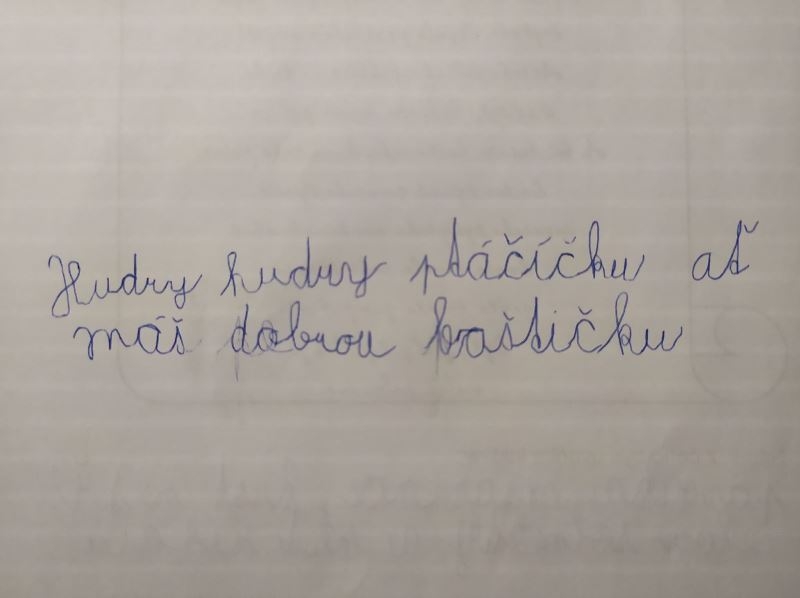 Hudry hudry ptáčíčku ať
máš dobrou baštičku